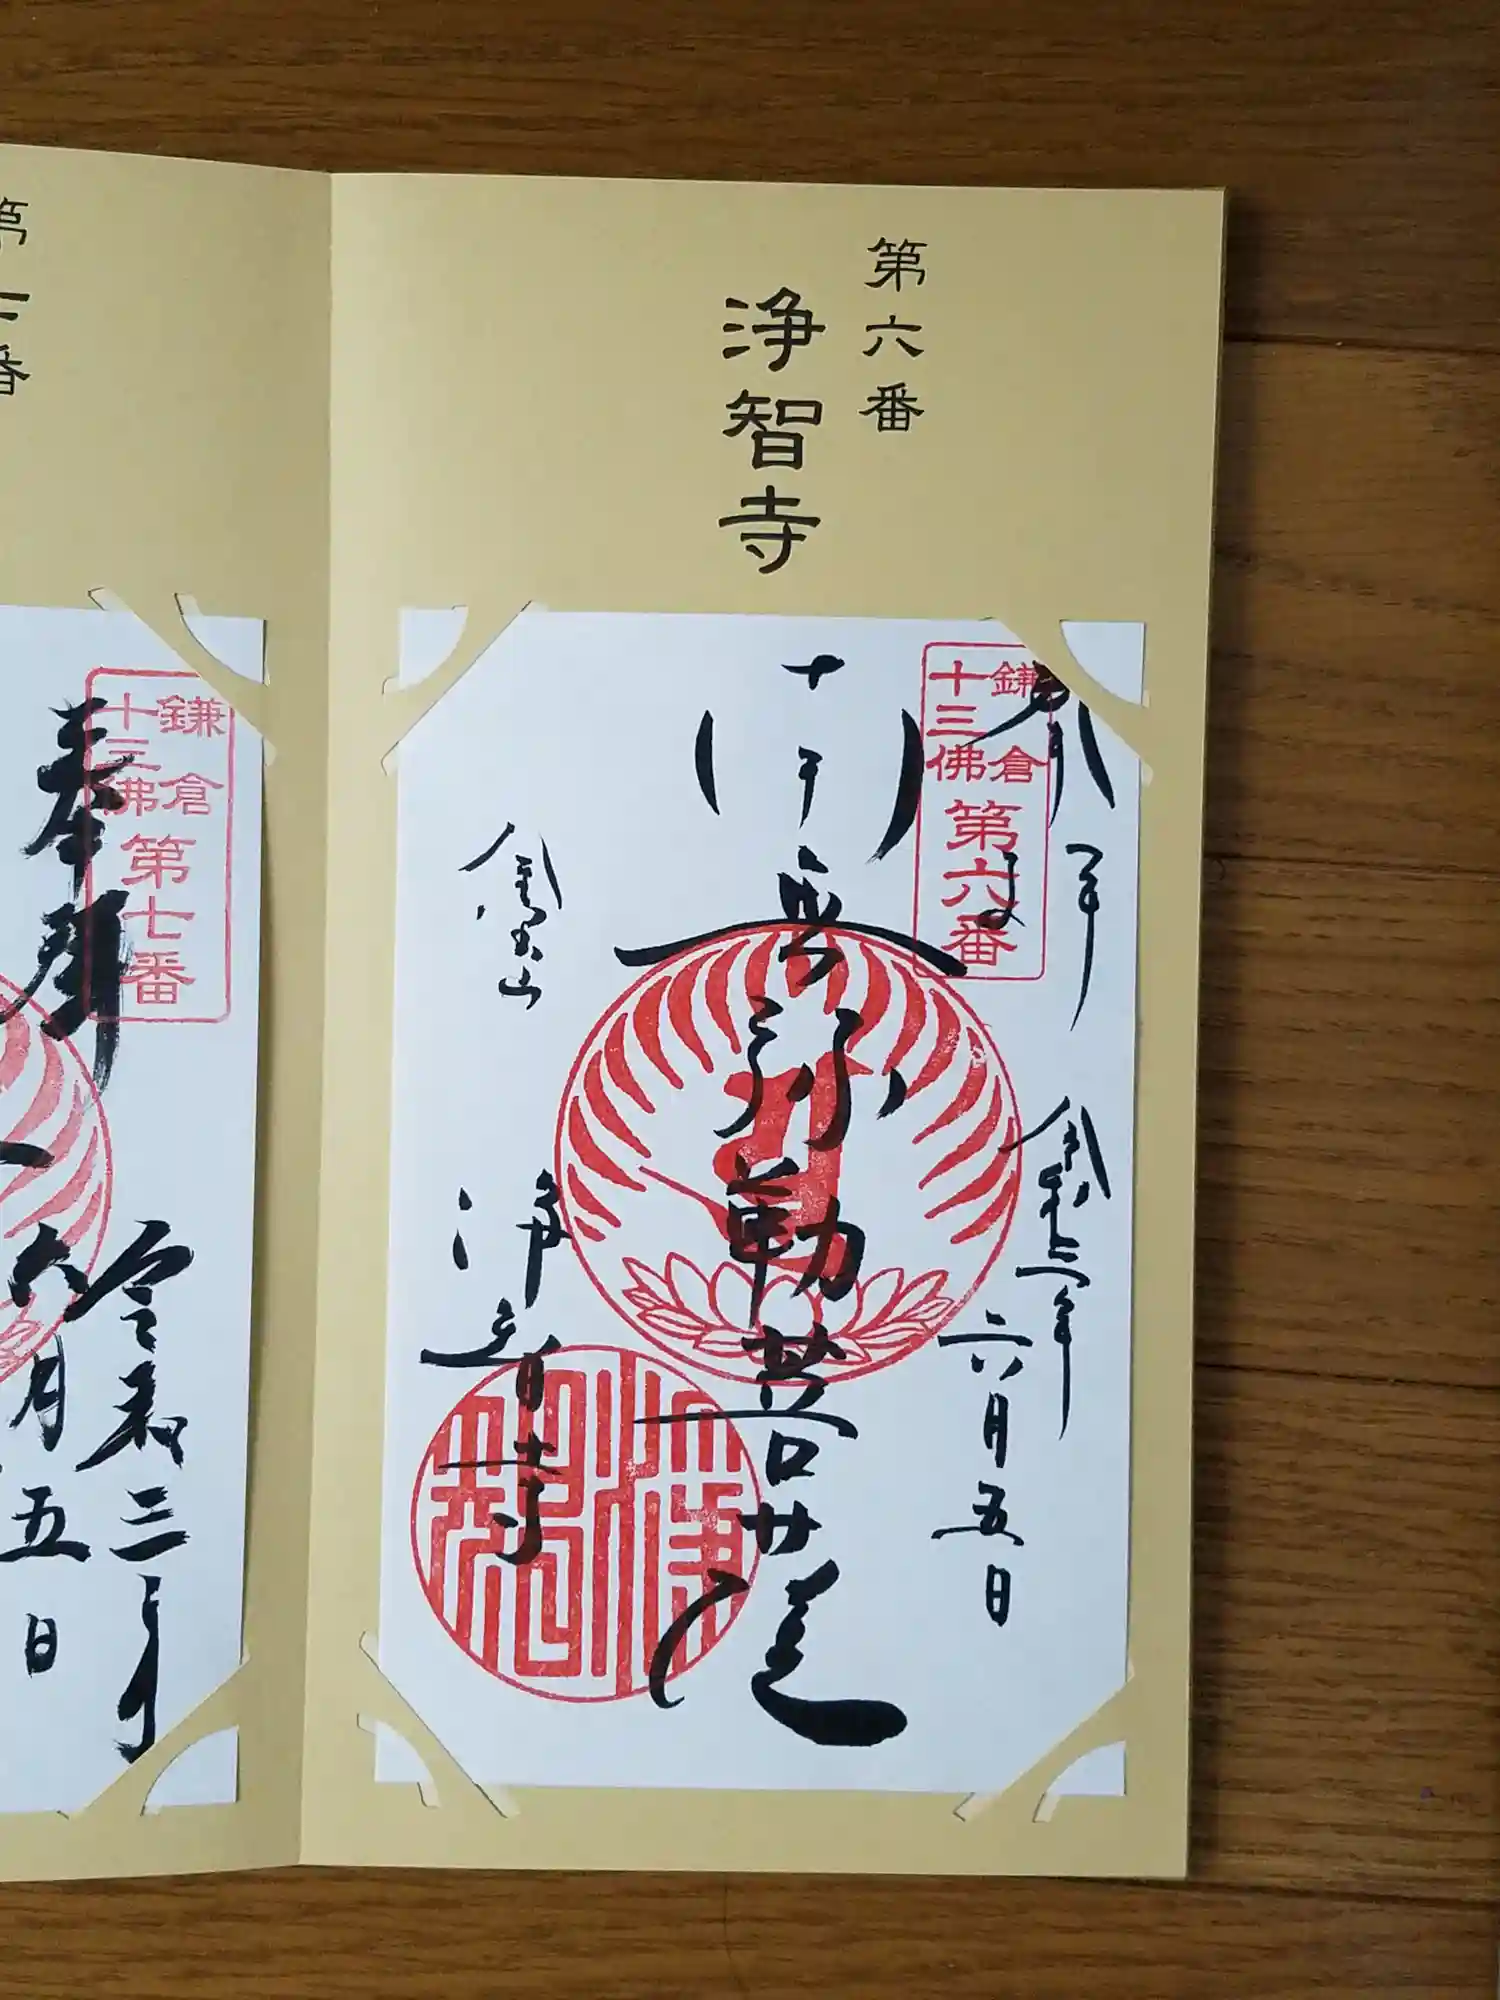 第六番
浄智寺
鎌倉
十三佛
第六番
令和三年
六月五日
南無弥勒菩薩
金宝山
浄智寺
第七番
鎌倉
十三佛
第七番
奉拝
令和三年
六月五日